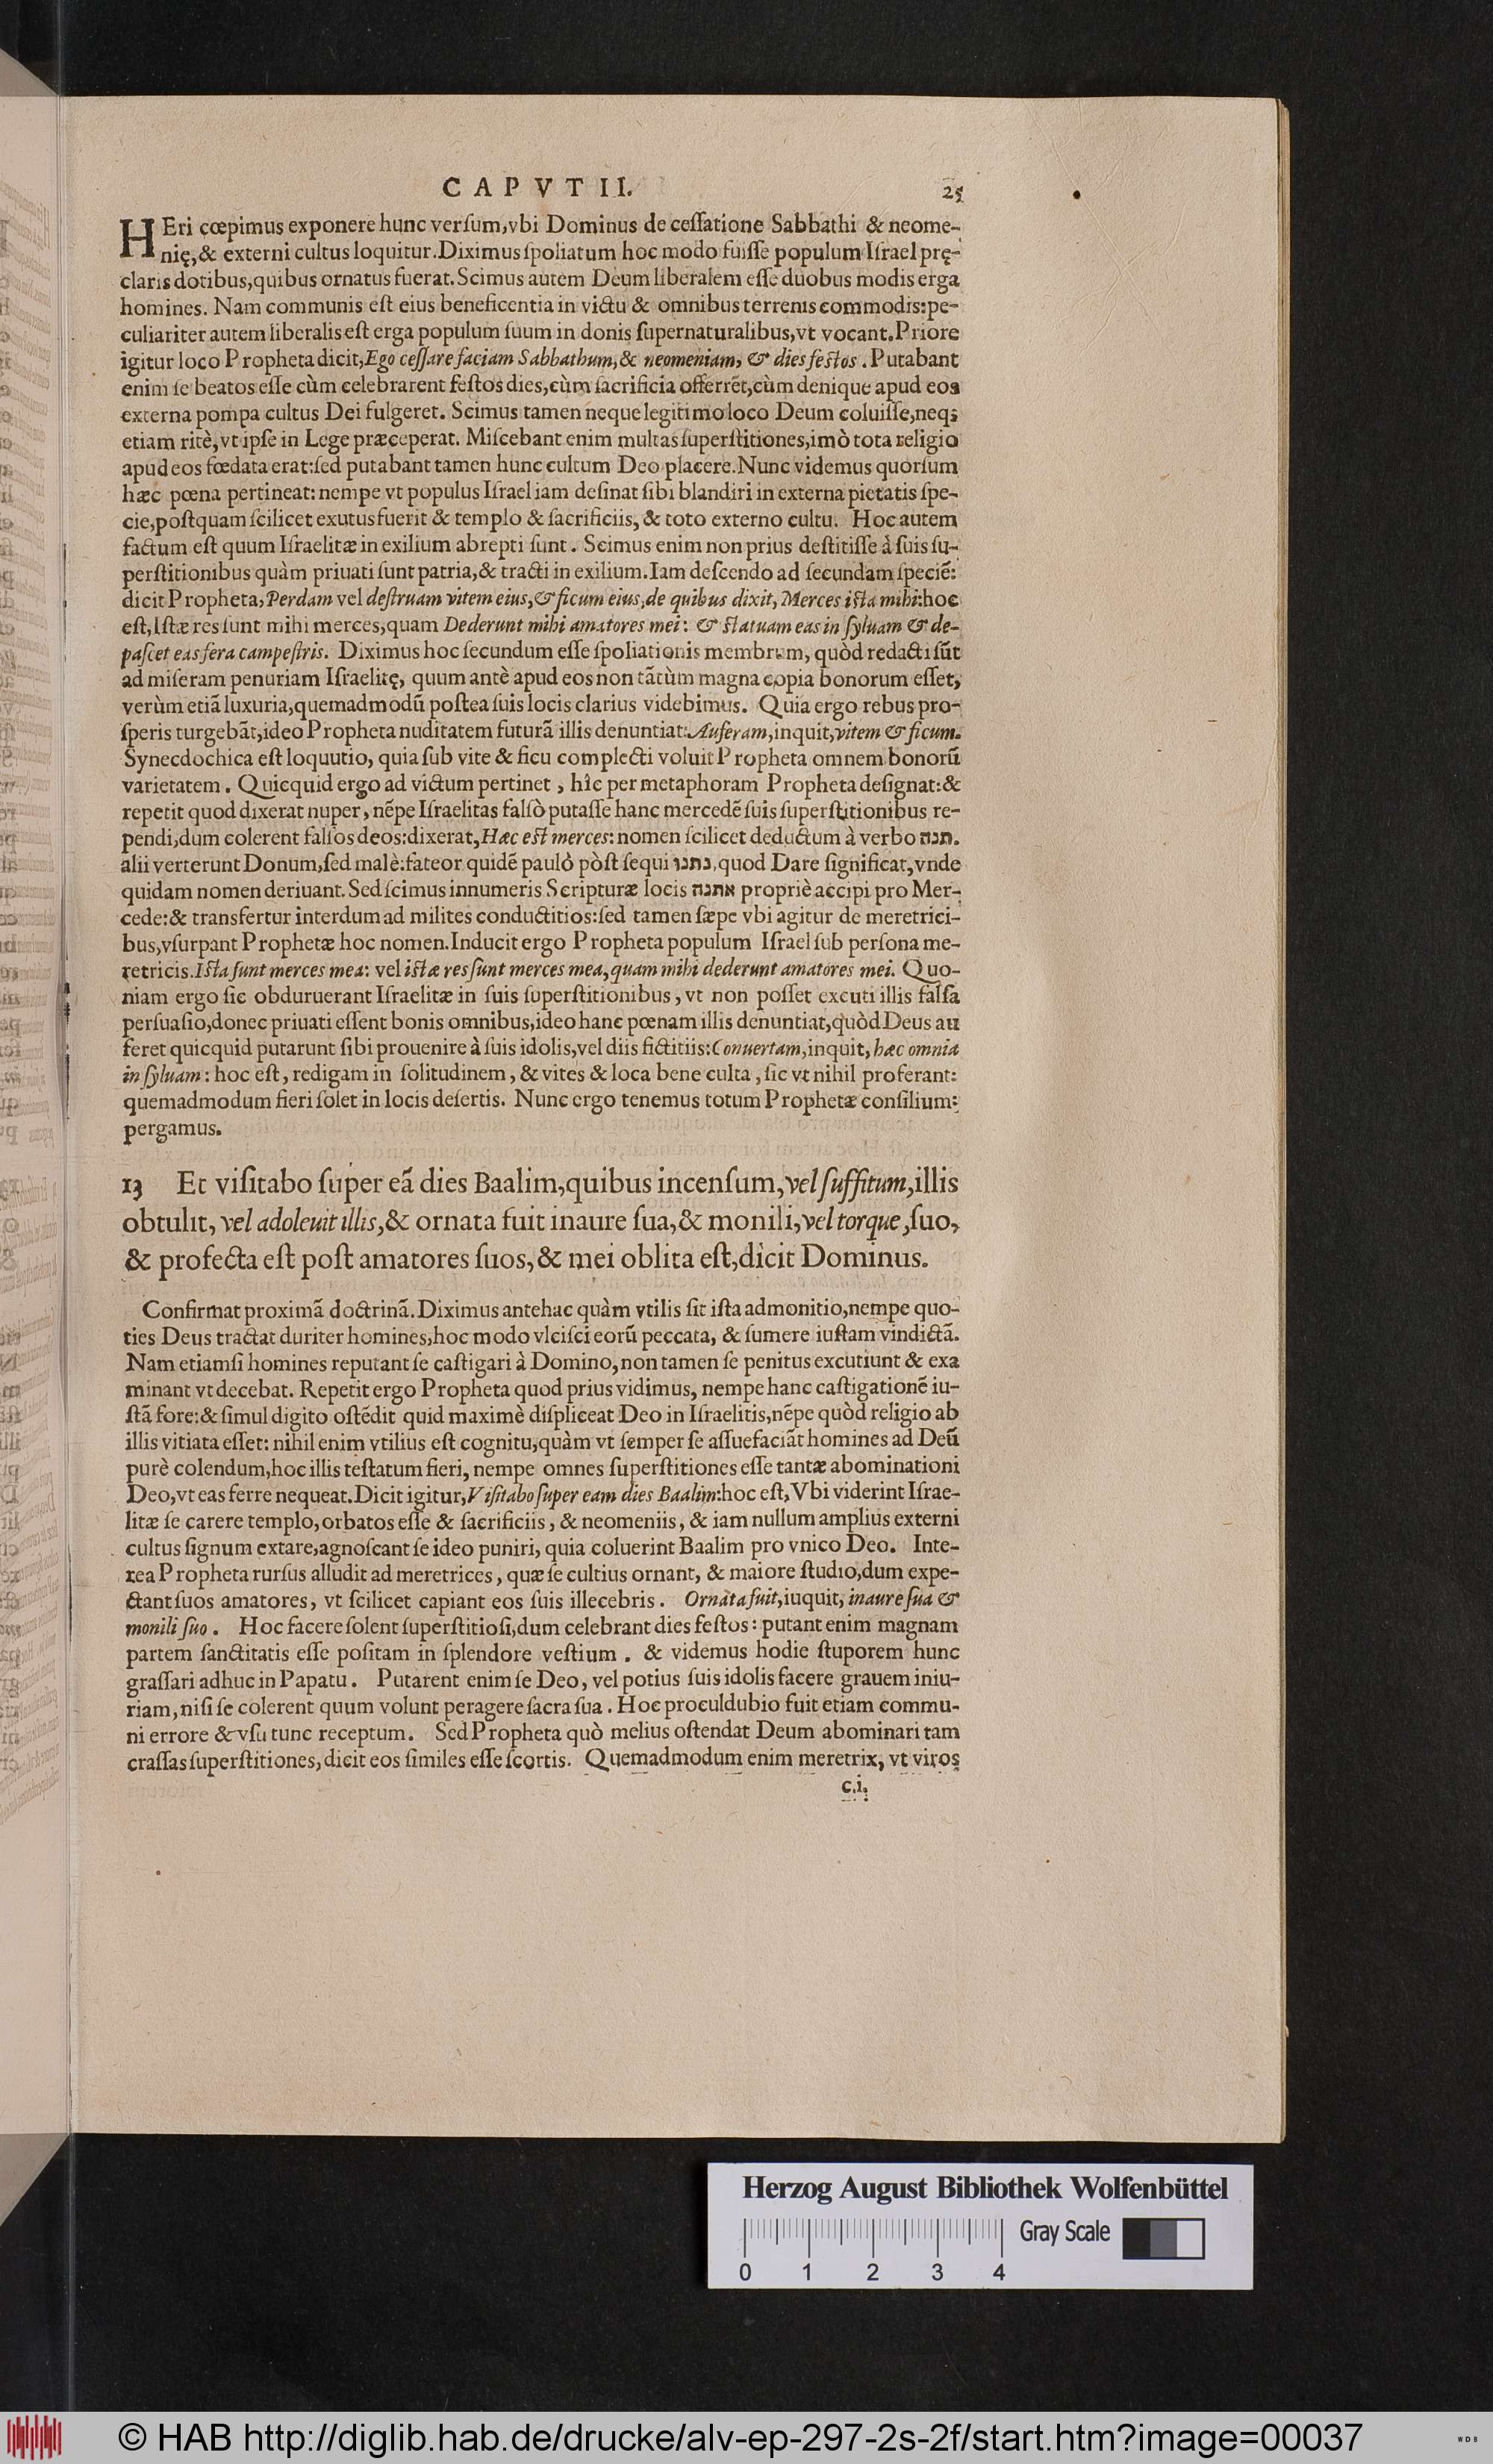 CAPVT II.
25
HEri cœpimus exponere hunc verſum,vbi Dominus de ceſſatione Sabbathi & neome-
nię,& externi cultus loquitur.Diximus ſpoliatum hoc modo fuiſſe populum Iſrael prę-
claris dotibus,quibus ornatus fuerat.Scimus autem Deum liberalem eſſe duobus modis erga
homines. Nam communis eſt eius beneficentia in victu & omnibus terrenis commodis:pe-
culiariter autem liberalis eſt erga populum ſuum in donis ſupernaturalibus,vt vocant.Priore
igitur loco Propheta dicit,Ego ceſſare faciam Sabbathum,& neomeniam, & dies feſtos .Putabant
enim ſe beatos eſſe cùm celebrarent feſtos dies,cùm ſacrificia offerrẽt,cùm denique apud eos
externa pompa cultus Dei fulgeret. Scimus tamen neque legitimo loco Deum coluiſſe,neqꝫ
etiam ritè,vt ipſe in Lege præceperat. Miſcebant enim multas ſuperſtitiones,imò tota religio
apud eos fœdata erat:ſed putabant tamen hunc cultum Deo placere.Nunc videmus quorſum
hæc pœna pertineat: nempe vt populus Iſrael iam deſinat ſibi blandiri in externa pietatis ſpe-
cie,poſtquam ſcilicet exutus fuerit & templo & ſacrificiis, & toto externo cultu. Hoc autem
factum eſt quum Iſraelitæ in exilium abrepti ſunt. Scimus enim non prius deſtitiſſe à ſuis ſu-
perſtitionibus quàm priuati ſunt patria,& tracti in exilium.Iam deſcendo ad ſecundam ſpeciẽ:
dicit Propheta,Perdam vel deſtruam vitem eius,& ficum eius,de quibus dixit, Merces iſta mihi:hoc
eſt,Iſtæ res ſunt mihi merces,quam Dederunt mihi amatores mei: & ſtatuam eas in ſyluam & de-
paſcet eas fera campeſtris. Diximus hoc ſecundum eſſe ſpoliationis membrum, quòd redacti ſũt
ad miſeram penuriam Iſraelitę, quum antè apud eos non tãtùm magna copia bonorum eſſet,
verùm etiã luxuria,quemadmodũ poſtea ſuis locis clarius videbimus. Quia ergo rebus pro-
ſperis turgebãt,ideo Propheta nuditatem futurã illis denuntiat:Auferam,inquit,vitem & ficum.
Synecdochica eſt loquutio, quia ſub vite & ficu complecti voluit Propheta omnem bonorũ
varietatem. Quicquid ergo ad victum pertinet , hîc per metaphoram Propheta deſignat:&
repetit quod dixerat nuper, nẽpe Iſraelitas falſò putaſſe hanc mercedẽ ſuis ſuperſtitionibus re-
pendi,dum colerent falſos deos:dixerat,Hæc eſt merces: nomen ſcilicet deductum à verbo תנה.
alii verterunt Donum,ſed malè:fateor quidẽ pauló pòſt ſequi נתנו,quod Dare ſignificat,vnde
quidam nomen deriuant. Sed ſcimus innumeris Scripturæ locis אתנה propriè accipi pro Mer-
cede:& transfertur interdum ad milites conductitios:ſed tamen ſæpe vbi agitur de meretrici-
bus,vſurpant Prophetæ hoc nomen.Inducit ergo Propheta populum Iſrael ſub perſona me-
retricis.Iſta ſunt merces mea: vel iſtæ res ſunt merces mea,quam mihi dederunt amatores mei. Quo-
niam ergo ſic obduruerant Iſraelitæ in ſuis ſuperſtitionibus, vt non poſſet excuti illis falſa
perſuaſio,donec priuati eſſent bonis omnibus,ideo hanc pœnam illis denuntiat,quòd Deus au
feret quicquid putarunt ſibi prouenire à ſuis idolis,vel diis fictitiis:Conuertam,inquit, hæc omnia
in ſyluam: hoc eſt, redigam in ſolitudinem, & vites & loca bene culta , ſic vt nihil proferant:
quemadmodum fieri ſolet in locis deſertis. Nunc ergo tenemus totum Prophetæ conſilium:
pergamus.
13 Et viſitabo ſuper eã dies Baalim,quibus incenſum,vel ſuffitum,illis
obtulit, vel adoleuit illis,& ornata fuit inaure ſua,& monili,vel torque,ſuo,
& profecta eſt poſt amatores ſuos,& mei oblita eſt,dicit Dominus.
Confirmat proximã doctrinã.Diximus antehac quàm vtilis ſit iſta admonitio,nempe quo-
ties Deus tractat duriter homines,hoc modo vlciſci eorũ peccata, & ſumere iuſtam vindictã.
Nam etiamſi homines reputant ſe caſtigari à Domino,non tamen ſe penitus excutiunt & exa
minant vt decebat. Repetit ergo Propheta quod prius vidimus, nempe hanc caſtigationẽ iu-
ſtã fore:& ſimul digito oſtẽdit quid maximè diſpliceat Deo in Iſraelitis,nẽpe quòd religio ab
illis vitiata eſſet: nihil enim vtilius eſt cognitu,quàm vt ſemper ſe aſſuefaciãt homines ad Deũ
purè colendum,hoc illis teſtatum fieri, nempe omnes ſuperſtitiones eſſe tantæ abominationi
Deo,vt eas ferre nequeat.Dicit igitur,Viſitabo ſuper eam dies Baalim:hoc eſt, Vbi viderint Iſrae-
litæ ſe carere templo,orbatos eſſe & ſacrificiis, & neomeniis, & iam nullum amplius externi
cultus ſignum extare,agnoſcant ſe ideo puniri, quia coluerint Baalim pro vnico Deo. Inte-
rea Propheta rurſus alludit ad meretrices, quæ ſe cultius ornant, & maiore ſtudio,dum expe-
ctant ſuos amatores, vt ſcilicet capiant eos ſuis illecebris. Ornata fuit,iuquit, inaure ſua &
monili ſuo . Hoc facere ſolent ſuperſtitioſi,dum celebrant dies feſtos: putant enim magnam
partem ſanctitatis eſſe poſitam in ſplendore veſtium . & videmus hodie ſtuporem hunc
graſſari adhuc in Papatu. Putarent enim ſe Deo, vel potius ſuis idolis facere grauem iniu-
riam,niſi ſe colerent quum volunt peragere ſacra ſua. Hoc proculdubio fuit etiam commu-
ni errore & vſu tunc receptum. Sed Propheta quò melius oſtendat Deum abominari tam
craſſas ſuperſtitiones,dicit eos ſimiles eſſe ſcortis. Quemadmodum enim meretrix, vt viros
c.i.
Herzog August Bibliothek Wolfenbüttel
Gray Scale
0 1 2 3 4
© HAB http://diglib.hab.de/drucke/alv-ep-297-2s-2f/start.htm?image=00037
WDB